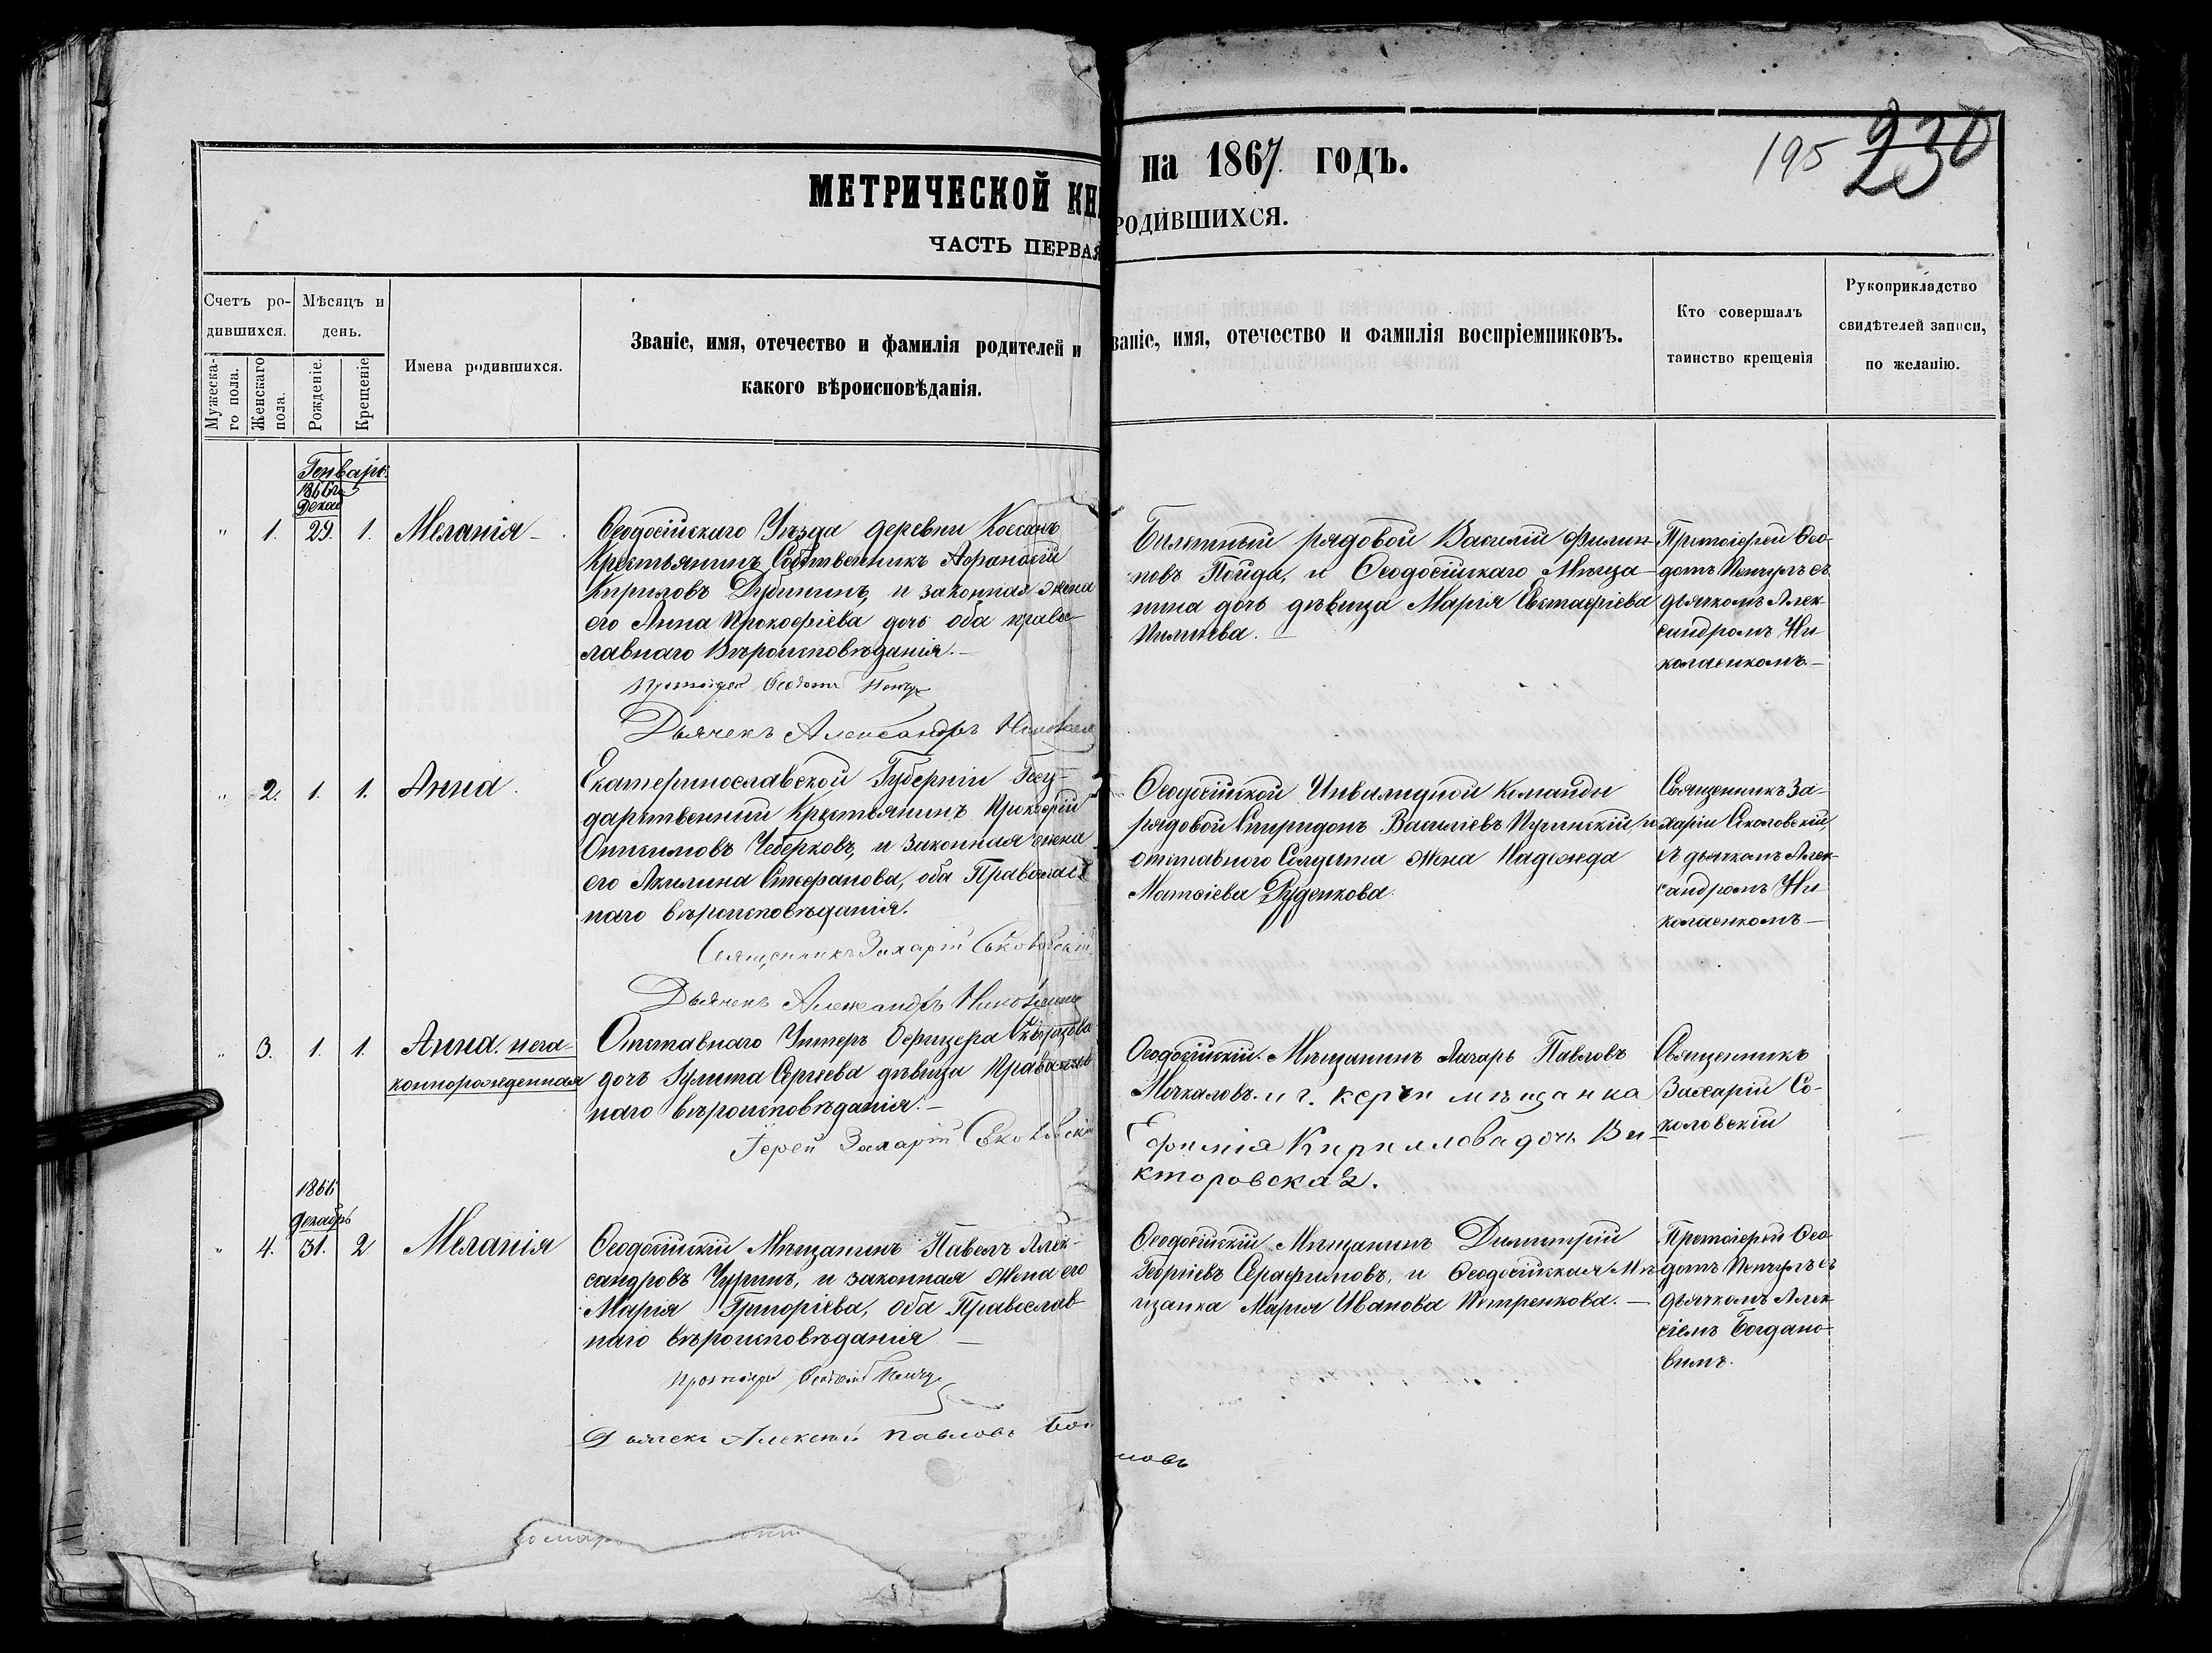 МЕТРИЧЕСКОЙ КНИ
ЧАСТЬ ПЕРВАЯ
на 1867 годъ.
РОДИВШИХСЯ.
195 230
Счетъ ро-
дившихся.
Мужеска-
го пола.
Женскаго
пола.
Мѣсяцъ и
день.
Рожденіе.
Крещеніе
Имена родившихся.
Званіе, имя, отечество и фамилія родителей и
какого вѣроисповѣданія.
Званіе, имя, отечество и фамилія воспріемниковъ.
Кто совершалъ
таинство крещенія
Рукоприкладство
свидѣтелей записи,
по желанію.
Генварь.
1866 г.
Декаб
" 1. 29. 1. Меланія
Ѳеодосійскаго Уѣзда деревни
Крестьянинъ Собственникъ Аѳанасій
Кириловъ Дубининъ, и законная жена
его Анна Прокофіева дочь оба правос-
лавнаго Вѣроисповѣданія.
Протоіерей Ѳеодотъ
Дьячекъ Александръ
Билетный рядовой Василій Филип-
повъ Пойда, и Ѳеодосійскаго Мѣща-
нина дочь дѣвица Марія Евстафіева
Протоіерей Ѳео-
дотъ съ
дьячкомъ Алек-
сандромъ Ни-
колаенкомъ
" 2. 1. 1. Анна
Екатеринославской Губерніи Госу-
дарственный Крестьянинъ Прокофій
Онисимовъ Чеберковъ, и законная жена
его Акилина Стефанова, оба Православ-
наго вѣроисповѣданія.
Священникъ Захарій Соколовскій
Дьячекъ Александръ
Ѳеодосійской Инвалидной Команды
рядовой Спиридонъ Васильевъ Пугинскій, и
отставнаго Солдата жена Надежда
Матвіева Руденкова.
Священникъ За-
харій Соколовскій,
съ дьячкомъ Алек-
сандромъ Ни-
колаенкомъ
" 3. 1. 1. Анна. неза-
коннорожденная
Отставнаго Унтеръ Офицера Скворцова
дочь Іулита Сергѣева дѣвица Православ-
наго вѣроисповѣданія.
Іерей Захарій Соколовскій
Ѳеодосійскій Мѣщанинъ Лазарь Павловъ
Мочаловъ. и г. Керчи мѣщанка
Ефимія Кириллова дочь Ви-
кторовская.
Священникъ
Захарій Со-
коловскій
1866
декабрь
" 4. 31. 2 Меланія
Ѳеодосійскій Мѣщанинъ Павелъ Алек-
сандровъ Чуринъ, и законная жена его
Марія Григоріева, оба Православ-
наго вѣроисповѣданія
Протоіерей Ѳеодотъ
Дьячекъ Алексѣй Павловъ Бог
новъ
Ѳеодосійскій Мѣщанинъ Димитрій
Георгіевъ Серафимовъ, и Ѳеодосійская Мѣ-
щанка Марія Иванова Петренкова.
Протоіерей Ѳео-
дотъ съ
дьячкомъ Алек-
сіемъ Богдано-
вымъ.